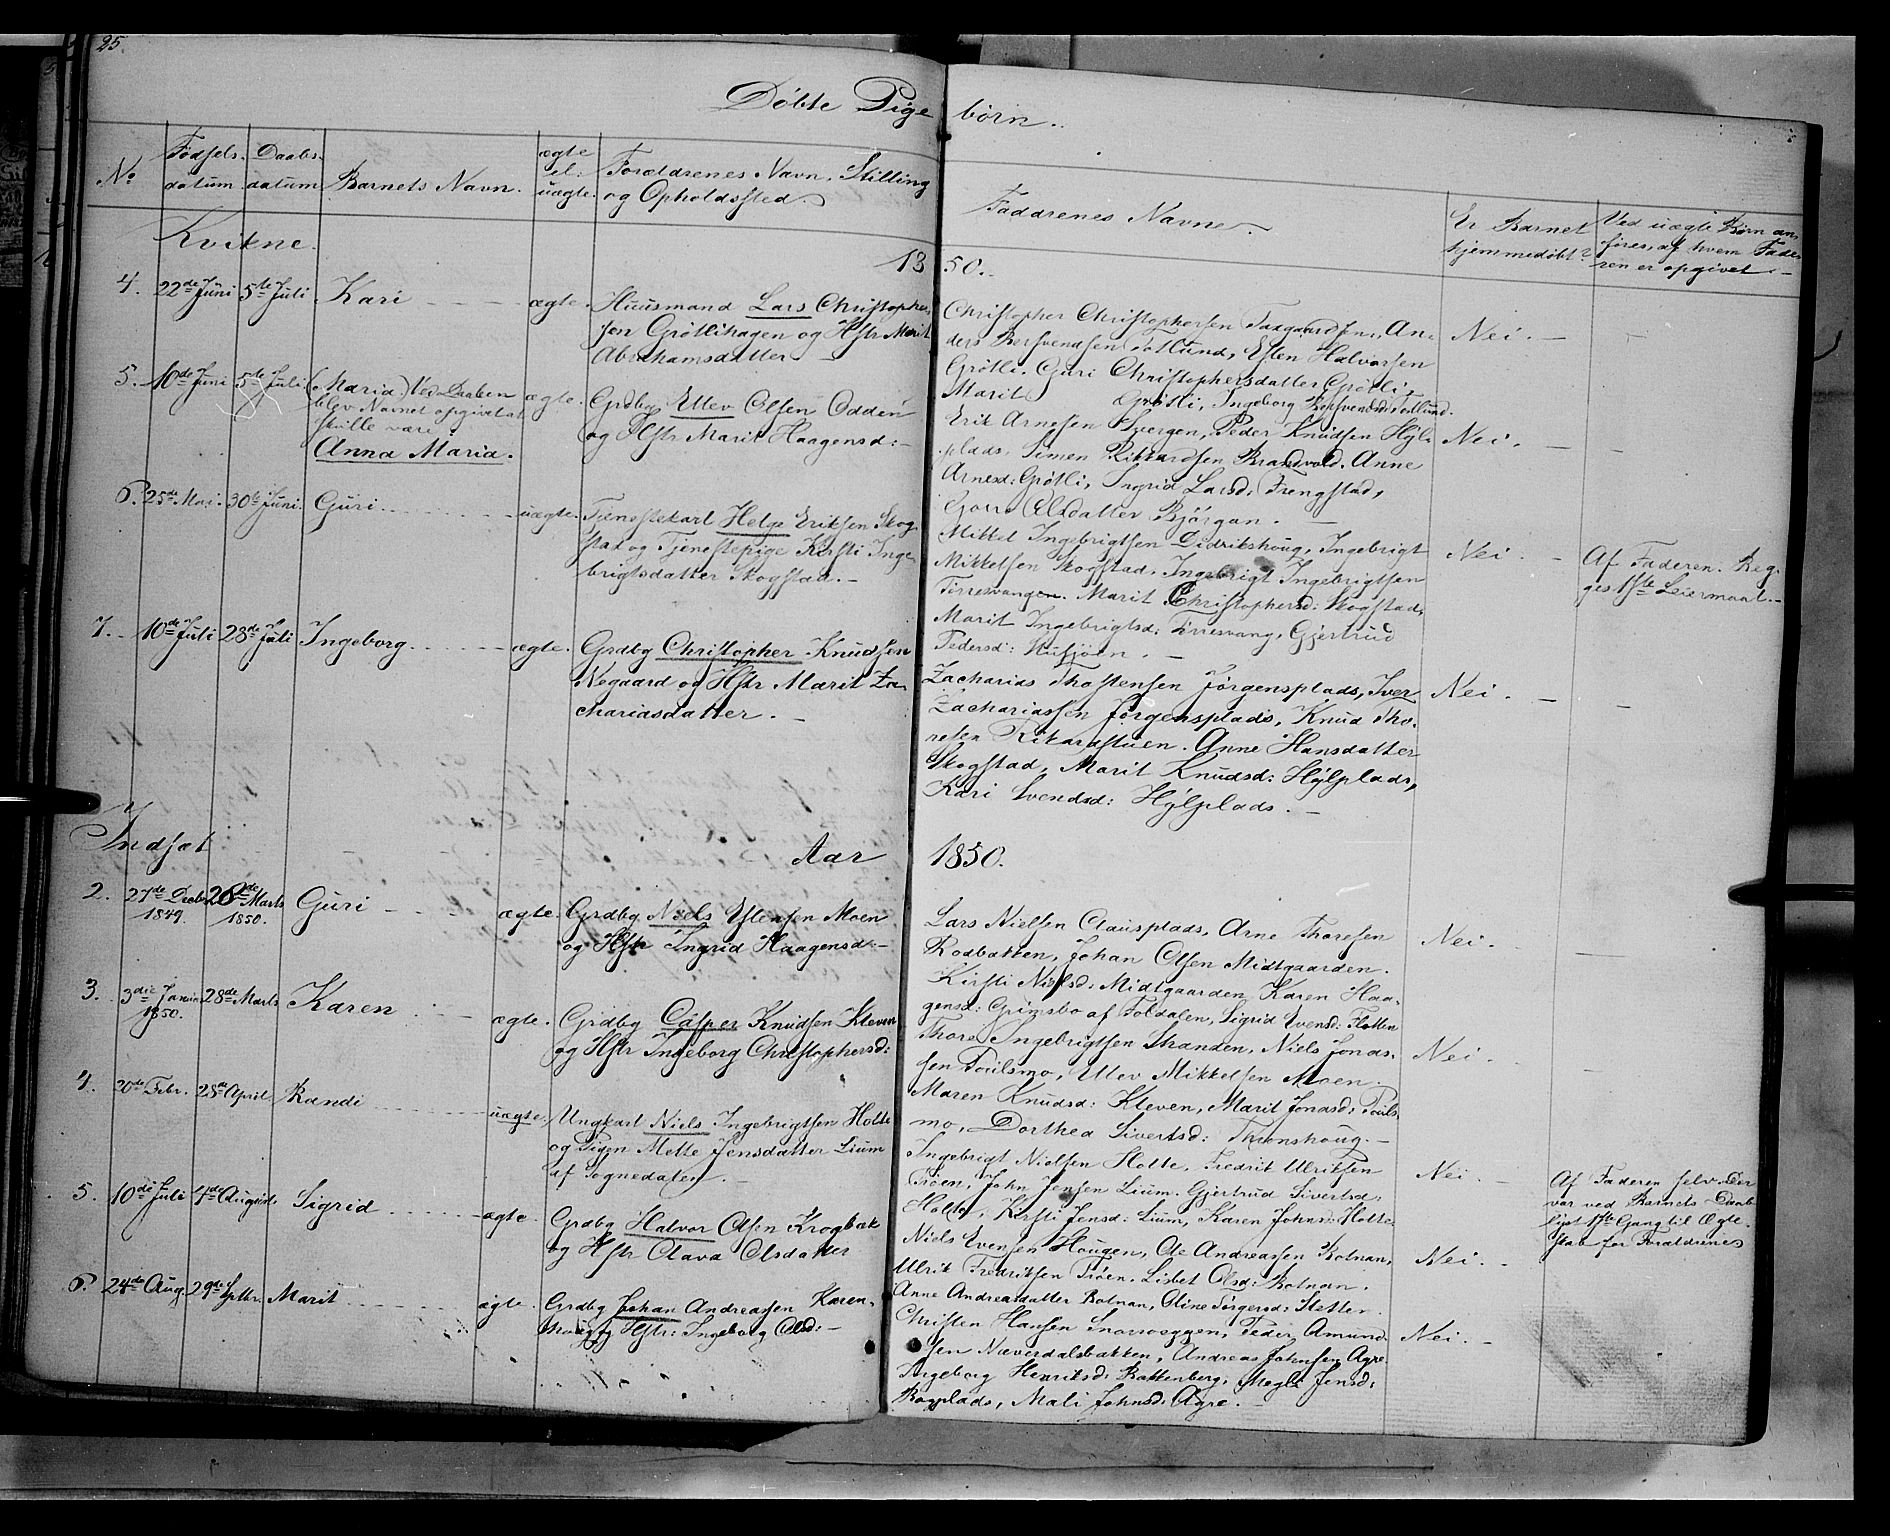 25.
Döbte Pige börn.
No
Födsels-
datum
Daabs-
datum
Barnets Navn.
ægte
el:
uægte.
Forældrenes Navn, Stilling
og Opholdssted.
Faddrenes Navne.
Er Barnet
hjemmedöbt?
Ved uægte Börn an-
föres, af hvem Fade-
ren er opgivet
Kvikne.
1850.
4. 22de Juni 5te Juli Kari ægte.
Huusmand Lars Christopher-
sen Grötlihagen og Hstr Marit
Abrahamsdatter
Christopher Christophersen An-
ders Bersvendsen Tollund, Esten Halvorsen
Grötli. Guri Christophersdatter Grötli,
Marit Grötli, Ingeborg
Nei. —
5. 10de Juni 5te Juli (Maria) Ved Daaben
blev Navnet opgivet at
skulle være
Anna Maria.
ægte.
Grdbg Ellev Olsen Odden
og Hstr Marit Haagensd: —
Erik Arnesen Peder Knudsen Höjl-
plads, Simen Rikkardsen Brandvold. Anne
Arnesd: Grötli, Ingrid Larsd: Frengstad,
Olsdatter Björgan. —
Nei. —
6. 25de Mai. 30te Juni. Guri uægte.
Tjenestekarl Helge Eriksen Skog-
stad og Tjenestepige Kirsti Inge-
brigtsdatter Skogstad. —
Mikkel Ingebrigtsen Didrikshoug, Ingebrigt
Mikkelsen Skogstad, Ingebrigt Ingebrigtsen
Torresvangen. Marit Christophersd: Skogstad,
Marit Ingebrigtsd: Torresvang, Gjertrud
Pedersd: —
Nei. —
Af Faderen. Beg-
ges 1ste Leiermaal. —
7. 10de Juli 28de Juli Ingeborg ægte.
Grdbg Christopher Knudsen
Negaard og Hstr Marit Za-
chariasdatter. —
Zacharias Thostensen Jörgensplads, Iver
Zachariassen Jörgensplads, Knud Tho-
resen Rikardstuen. Anne Hansdatter
Skogstad, Marit Knudsd: Höjlplads,
Kari Svendsd: Höjlplads. —
Nei. —
Indset
Aar 1850.
2. 27de Decbr 1849. 26de Marts 1850. Guri ægte.
Grdbg Niels Estensen Moen
og Hstr Ingrid Haagensd: —
Lars Nielsen Clausplads, Arne Thoresen
Rodbakken, Johan Olsen Midtgaarden.
Kirsti Nielsd: Midtgaarden, Karen Haa-
gensd: Grimsbo af Foldalen, Sigrid Evensd: Flotten
Nei. —
3. 3die Januar 1850. 28de Marts Karen ægte.
Grdbg Casper Knudsen Kleven
og Hstr Ingeborg Christophersd:
Thore Ingebrigtsen Stranden, Niels Jonas-
sen Poulsmo, Ellev Mikkelsen Moen.
Maren Knudsd: Kleven, Marit Jonasd: Pouls-
mo, Dorthea Sivertsd: Thronshoug. —
Nei. —
4. 20de Febr. 28de April. Randi uægte.
Ungkarl Niels Ingebrigtsen Holte
og Pigen Mette Jensdatter Lium
af Sognedalen. —
Ingebrigt Nielsen Holte, Fredrik Ulriksen
Tröen, John Jensen Lium. Gjertrud Sivertsd:
Holte, Kirsti Jensd: Lium, Karen Johnsd: Holte.
Nei. —
Af Faderen selv. Der
var ved Barnets Daab
lyst 1ste Gang til Ægte-
skab for Forældrene
5. 10de Juli 4de August. Sigrid ægte.
Grdbg Halvor Olsen Krogbæk
og Hstr Olava Olsdatter
Niels Evensen Hougen, Ole Andreassen Rotnan,
Ulrik Fredriksen Tröen. Lisbet Olsd: Rotnan.
Anne Andreasdatter Rotnan, Oline Jörgensd: Sletten.
Nei. —
6. 24de Aug. 29de Septbr. Marit ægte.
Grdbg Johan Andreassen Karen-
houg og Hstr: Ingeborg Olsd: —
Christen Hansen Snorroeggen, Peder Amund-
sen Næverdalsbakken, Andreas Johnsen Agre
Ingeborg Henriksd: Rattenberg, Jensd:
plads, Mali Johnsd: Agre. —
Nei. —